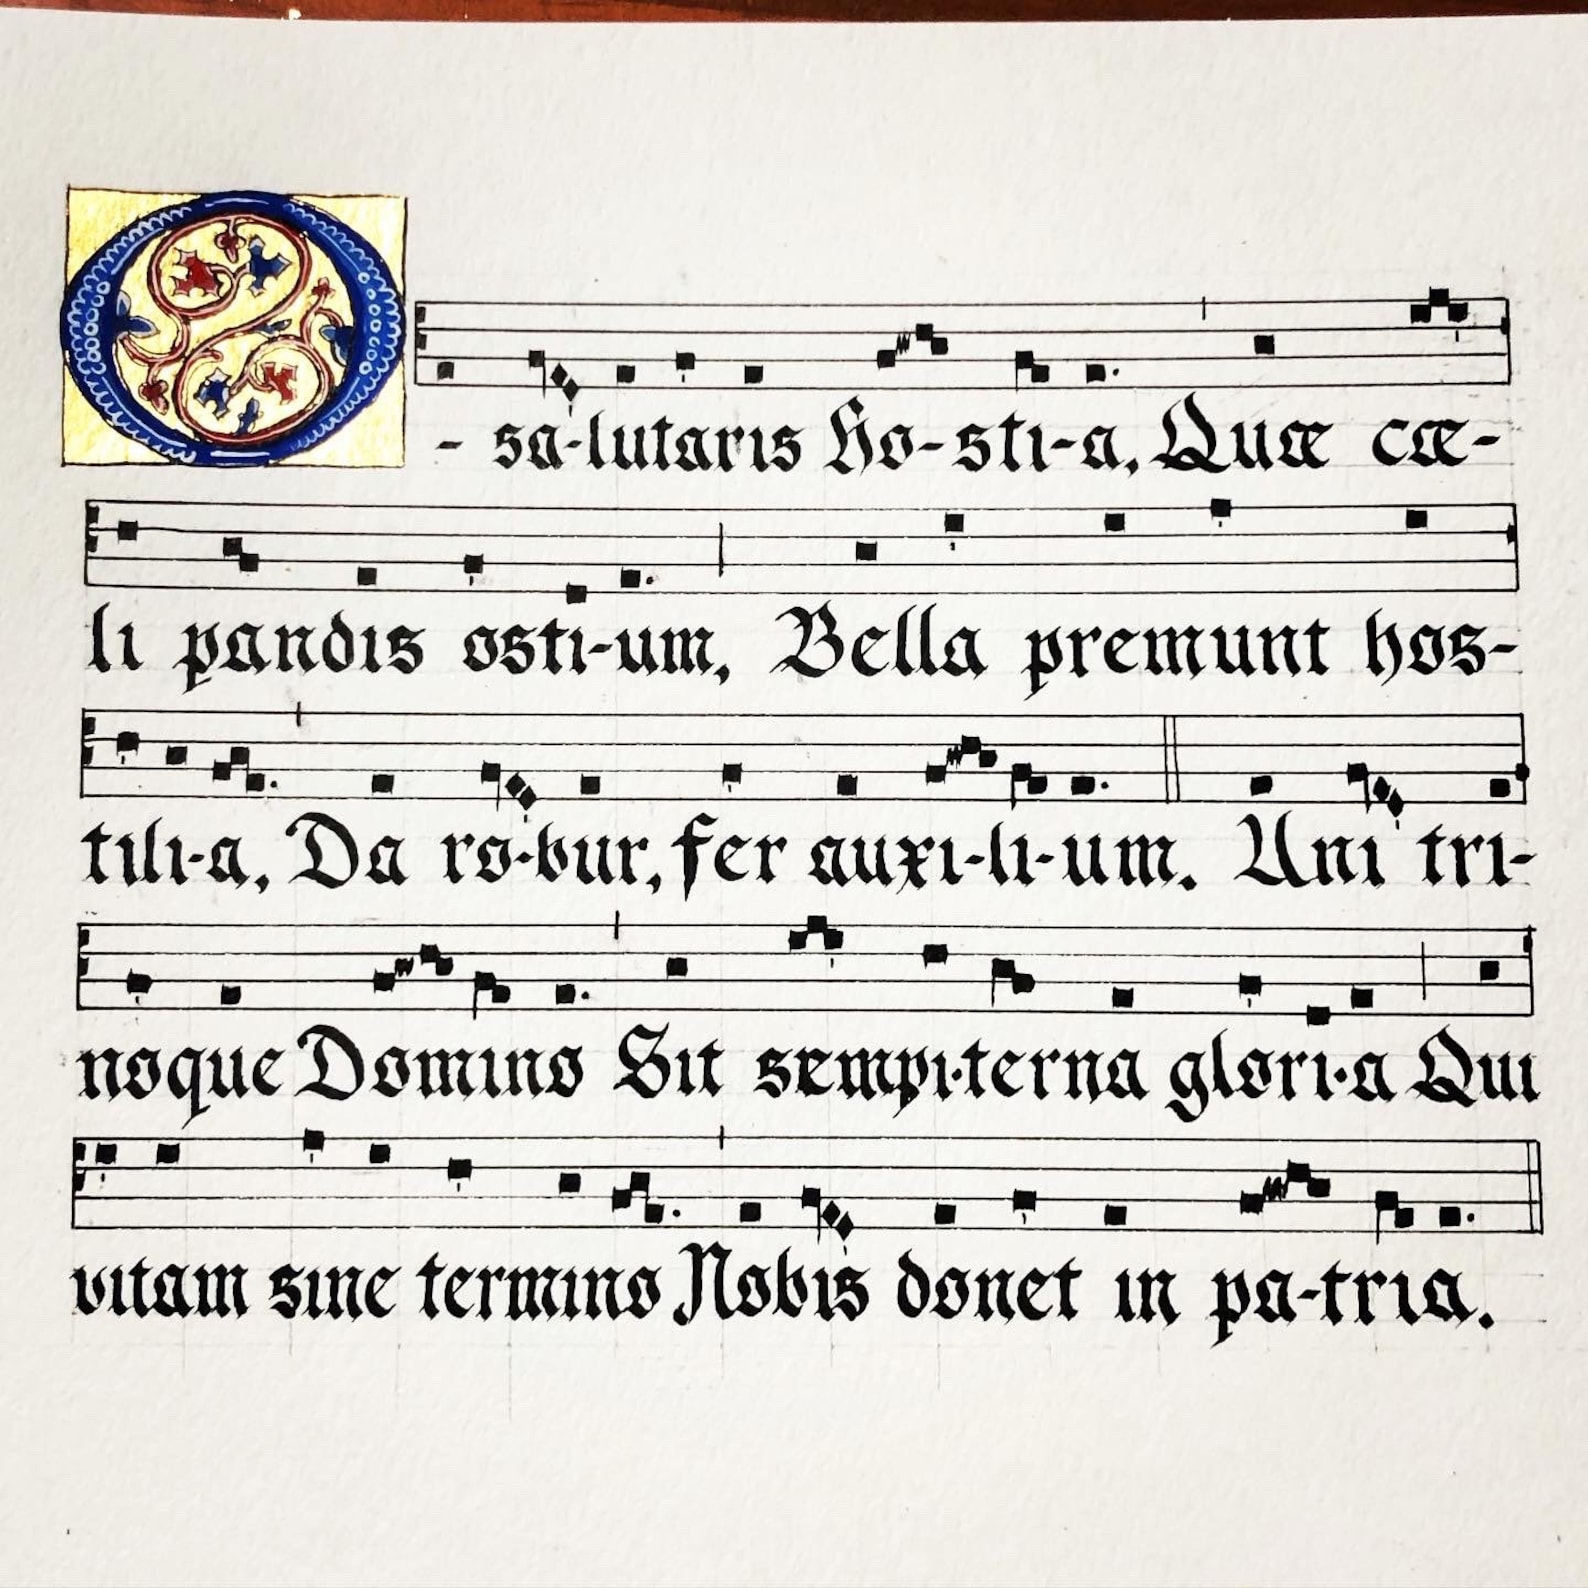 O - sa-lutaris Ho-sti-a, Quæ cœ-
li pandis osti-um, Bella premunt hos-
tili-a, Da ro-bur, fer auxi-li-um. Uni tri-
noque Domino Sit sempi-terna glori-a Qui
vitam sine termino Nobis donet in pa-tria.